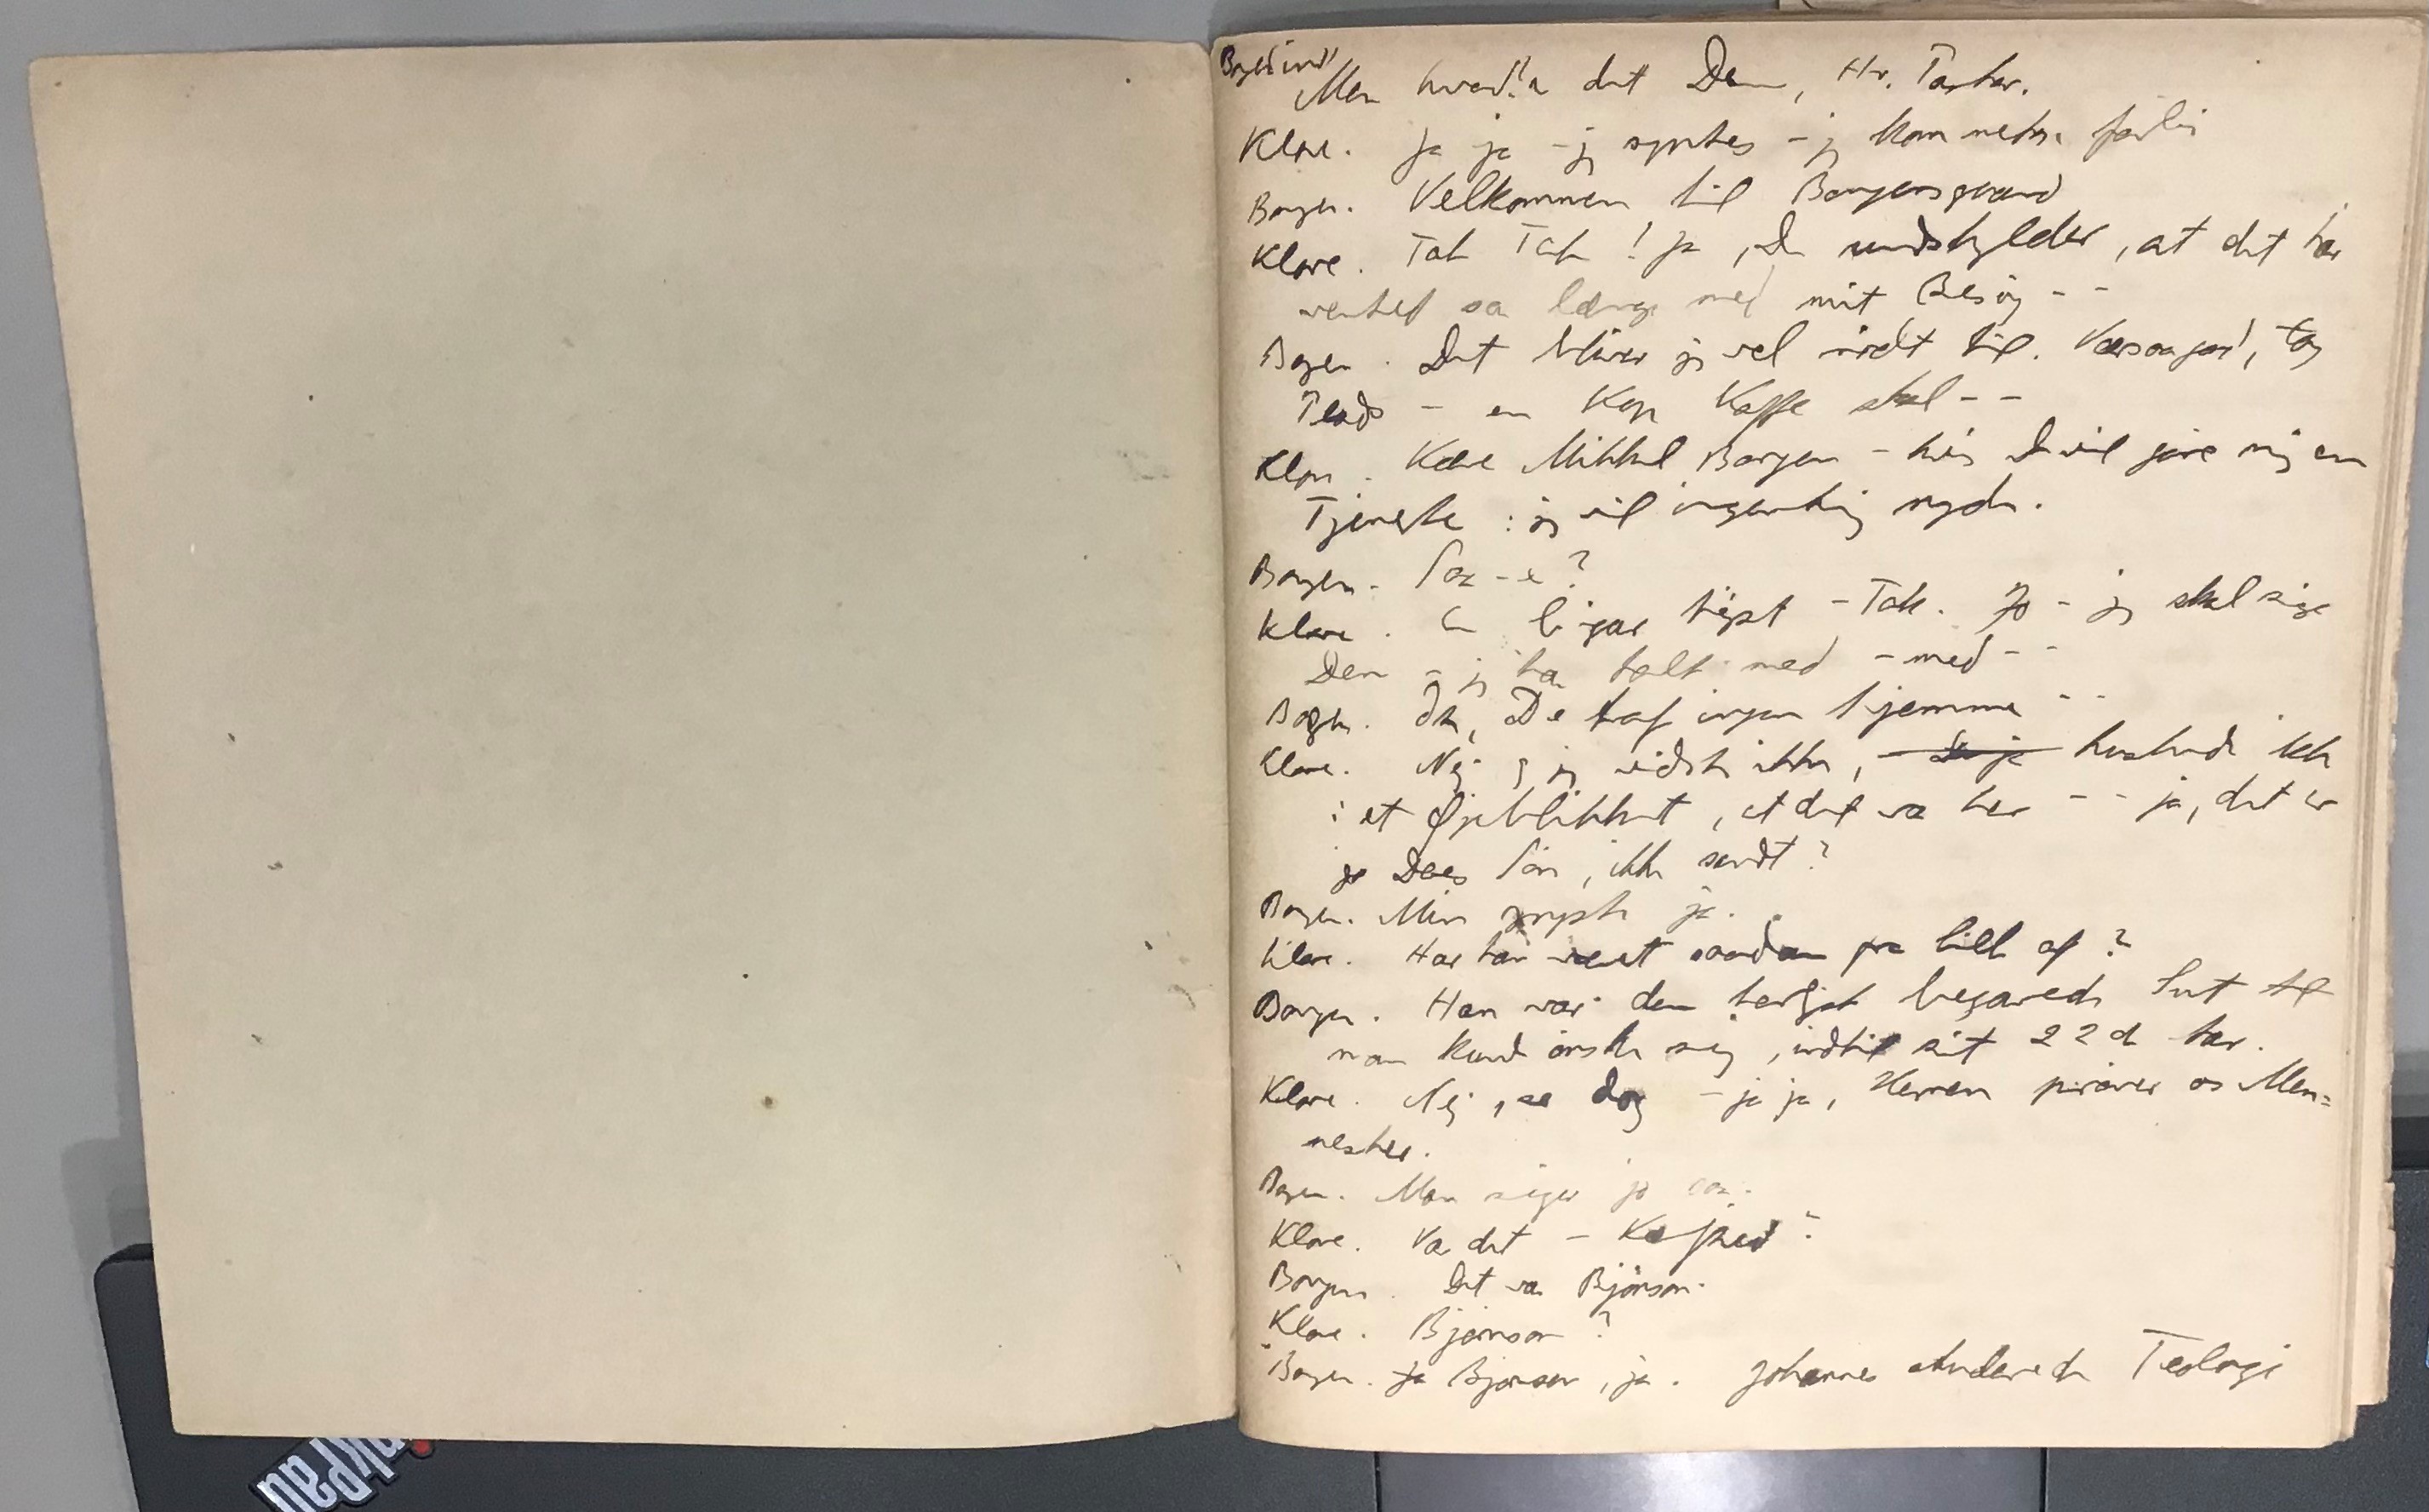 Men hvad! er det Dem, Hr. Pastor.
Klare. Ja ja - jeg syntes - jeg kom netop forbi
Borgen. Velkommen til Borgensgaard
Klare. Tak Tak! Ja, De undskylder, at det har
ventet saa længe med mit Besøg - -
Borgen. Det bliver jeg vel nødt til. Værsaagod, tag
Plads - en Kop Kaffe skal - -
Klare. Kære Mikkel Borgen - hvis De vil gøre mig en
Tjeneste: jeg vil ingenting nyde.
Borgen. Saa - e?
Klare. tigst - Tak. Jo - jeg skal sige
Dem - jeg har talt med - med - -
Borgen. De traf ingen hjemme - -
Klare. Nej jeg vidste ikke, huskede ikke
i et Øjeblikket, at det var her - - ja, det er
jo Deres Søn, ikke sandt?
Borgen. Min yngste ja.
Klare. Har han været saadan fra lille af?
Borgen. Han var den herligst begavede Gut
man kunde ønske sig, indtil sit 22de Aar.
Klare. Nej, se dog - ja ja, Herren prøver os Men=
nesker.
Borgen. Man siger jo saa.
Klare. Var det - Kærlighed?
Borgen. Det var Bjørnson.
Klare. Bjørnson?
Borgen. Ja Bjørnson, ja. Johannes studerede Teologi
ThinkPad